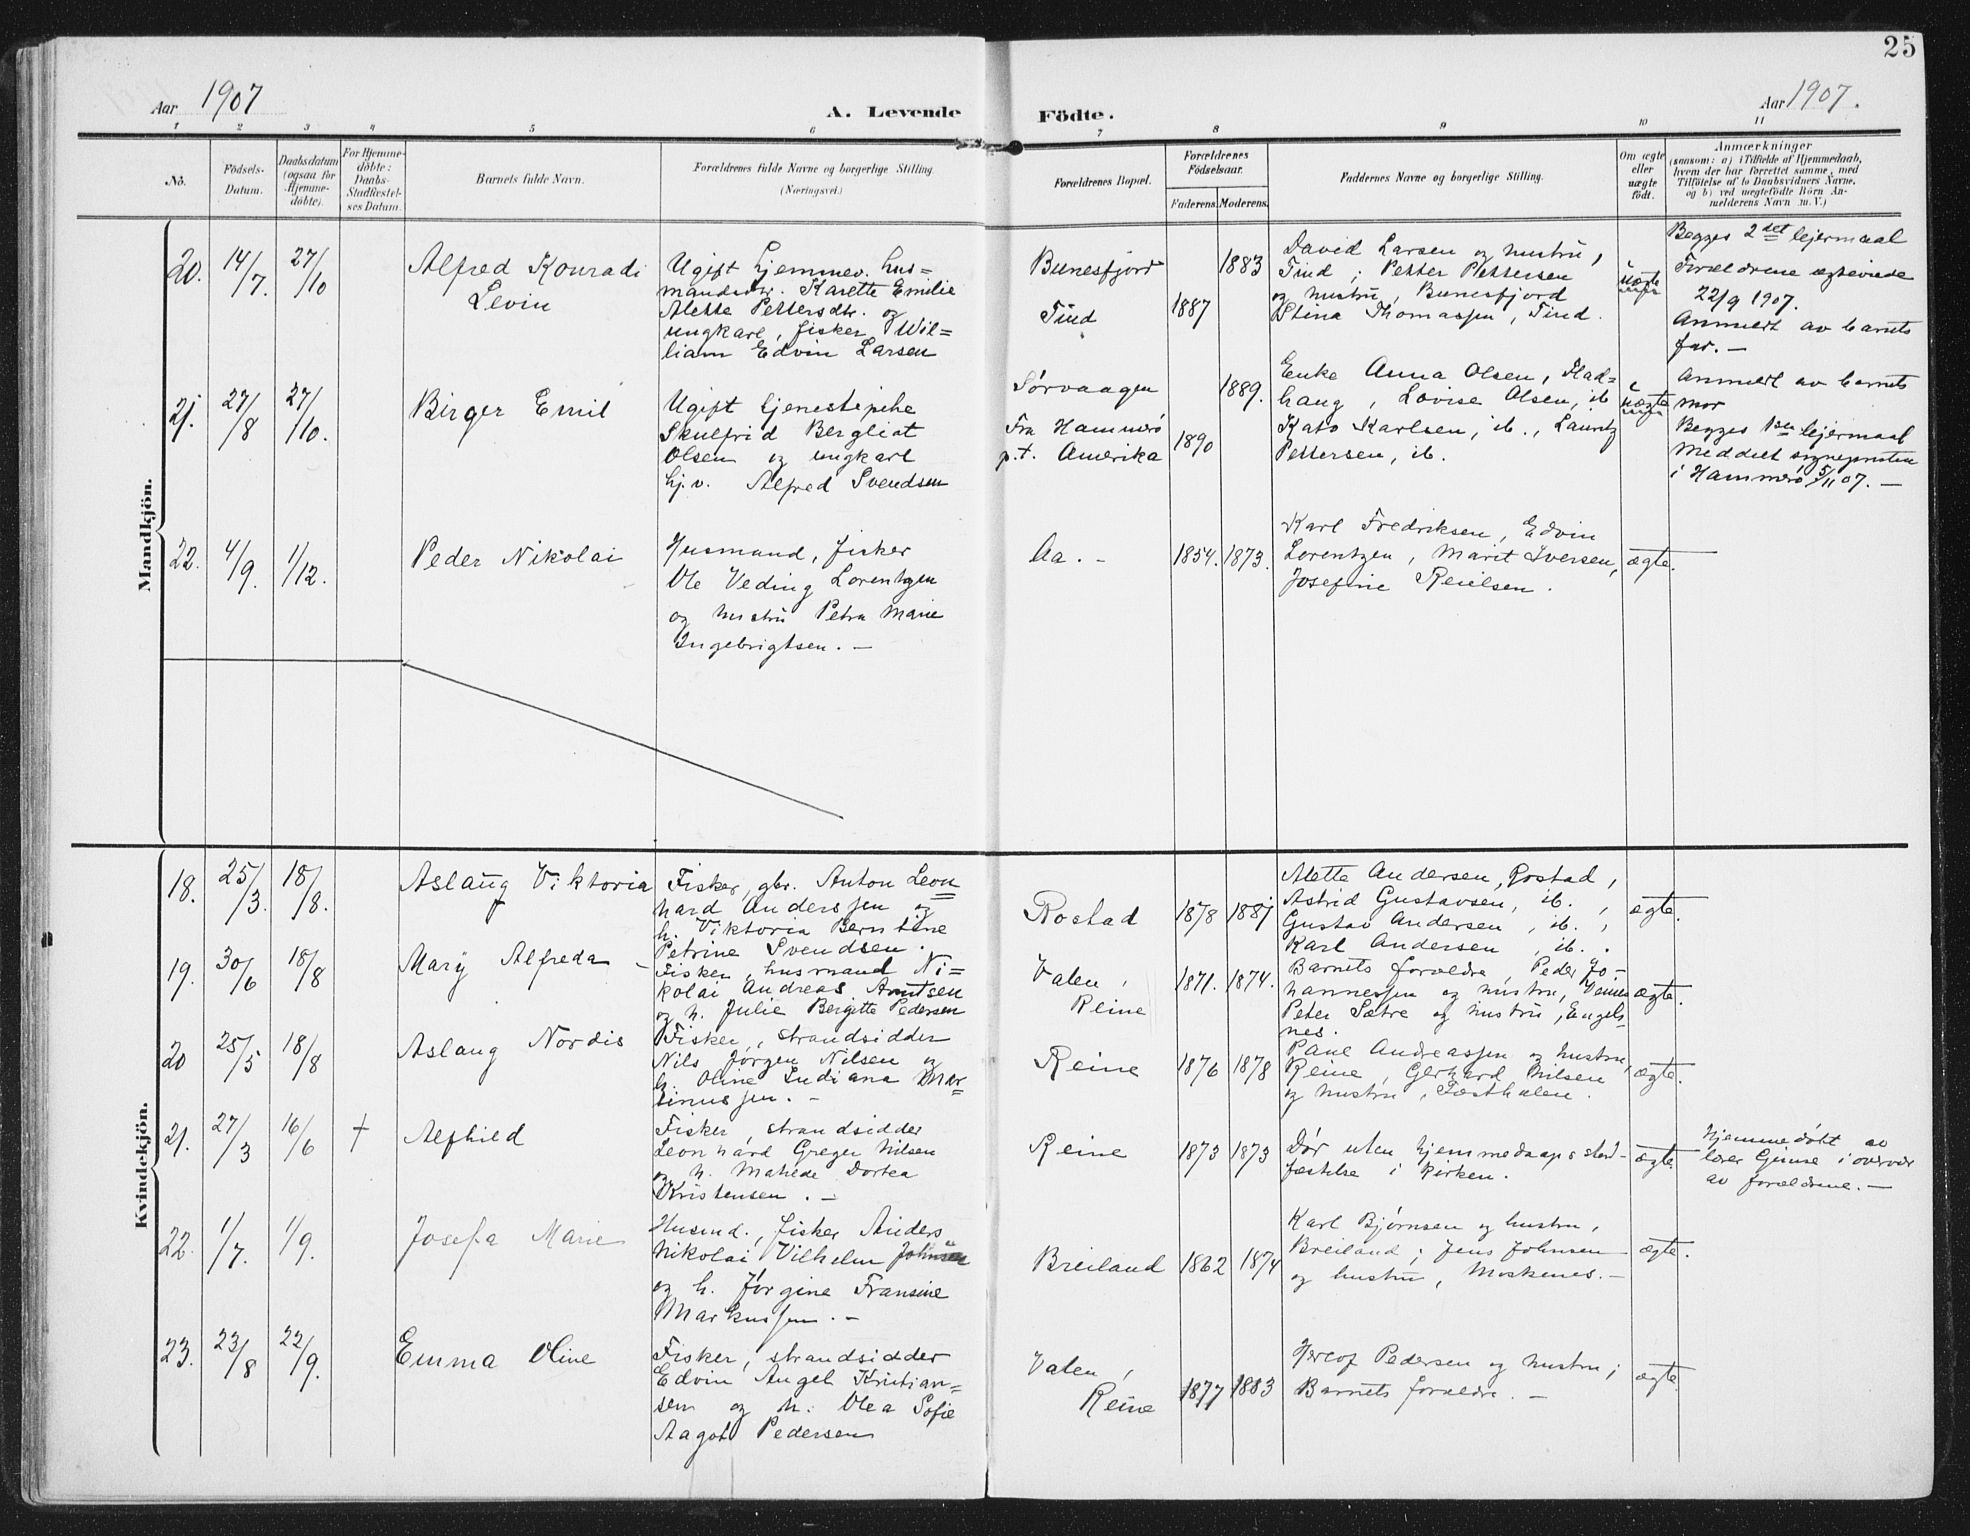 25
Aar 1907
A. Levende
Födte.
Aar 1907.
1 2 3 4 5 6 7 8 9 10 11
No.
Födsels-
Datum.
Daabsdatum
(ogsaa for
Hjemme-
döbte).
For Hjemme-
döbte:
Daabs-
Stadfæstel-
ses Datum.
Barnets fulde Navn.
Forældrenes fulde Navne og borgerlige Stilling
(Næringsvei.)
Forældrenes Bopæl.
Forældrenes
Födselsaar.
Faderens. Moderens.
Faddernes Navne og borgerlige Stilling.
Om ægte
eller
uægte
födt.
Anmærkninger
(saasom: a) i Tilfælde af Hjemmedaab,
hvem der har forrettet samme, med
Tilföielse af to Daabsvidners Navne,
og b) ved uægtefödte Börn An-
melderens Navn m. V.)
Mandkjön.
20. 14/7. 27/10
Alfred Konradi
Levin
Ugift hjemmev. hus-
mandsdtr. Karette Emilie
Alette Pettersdtr. og
ungkarl, fisker Wil-
liam Edvin Larsen
Bunesfjord
Tind
1887 1883
David Larsen og hustru,
Tind; Petter Pettersen
og hustru, Bunesfjord
Stina Thomassen, Tind.
uægte
Begges 2det lejermaal
Forældrene ægteviede
22/9 1907.
Anmeldt av barnets
far. -
21. 27/8 27/10.
Birger Emil
Ugift tjenestepike
Skulfrid Bergliot
Olsen og ungkarl
hj.v. Alfred Svendsen
Sørvaagen
Fra Hammerö
p.t. Amerika
1890 1889.
Enke Anna Olsen, Flad-
haug, Lovise Olsen, ib
Kato Karlsen, ib., Lauritz
Pettersen, ib.
uægte
Anmeldt av barnets
mor
Begges 1ste lejermaal
Meddelt sognepresten
i Hammerö 5/11 07. -
22. 4/9. 1/12.
Peder Nikolai
Husmand, fisker
Ole Veding Lorentzen
og hustru Petra Marie
Ingebrigtsen. -
Aa. -
1854. 1873.
Karl Fredriksen, Edvin
Lorentzen, Marit Iversen,
Josefine Reielsen.
ægte.
Kvindekjön.
18. 25/3. 18/8.
Aslaug Viktoria
Fisker, gbr. Anton Leon
hard Anderssen og
h. Viktoria Berntine
Petrine Svendsen.
Rostad
1878 1881
Alette Andersen, Rostad,
Astrid Gustavsen, ib.,
Gustav Andersen, ib.,
Karl Andersen, ib..
ægte.
19. 30/6 18/8
Mary Alfreda -
Fisker, husmand Ni-
kolai Andreas Arntsen
og h. Julie Bergitte Pedersen
Valen,
Reine
1871. 1874.
Barnets forældre, Peder Jo-
hannessen og hustru, Vennes
Peter Sætre og hustru, Engels-
nes.
ægte.
20 25/5 18/8
Aslaug Nordis
Fisker, strandsidder
Nils Jörgen Nilsen og
h. Oline Indiana Mar-
tinussen. -
Reine
1876 1878
Paul Andreassen og hustru,
Reine, Gerhard Nilsen
og hustru, Festhælen.
ægte.
21. 27/3 16/6 +
Alfhild
Fisker, strandsidder
Leonhard Greger Nilsen
og h. Matilde Dortea
Kristensen. -
Reine
1873 1873
Dør uten hjemmedaaps stad-
fæstelse i kirken.
ægte.
Hjemmedöbt av
lærer Gjemse i overvær
av forældrene. -
22. 1/7. 1/9.
Josefa Marie
Husmd., fisker Anders
Nikolai Vilhelm Johnsen
og h. Jörgine Fransine
Markussen. -
Breiland
1862 1874
Karl Bjørnsen og hustru,
Breiland; Jens Johnsen
og hustru, Moskenes. -
ægte.
23. 23/8 22/9.
Emma Oline
Fisker, strandsidder
Edvin Angel Kristian-
sen og h. Olea Sofie
Aagot Pedersen
Valen,
Reine
1877 1883
Herlof Pedersen og hustru;
Barnets forældre. -
ægte.